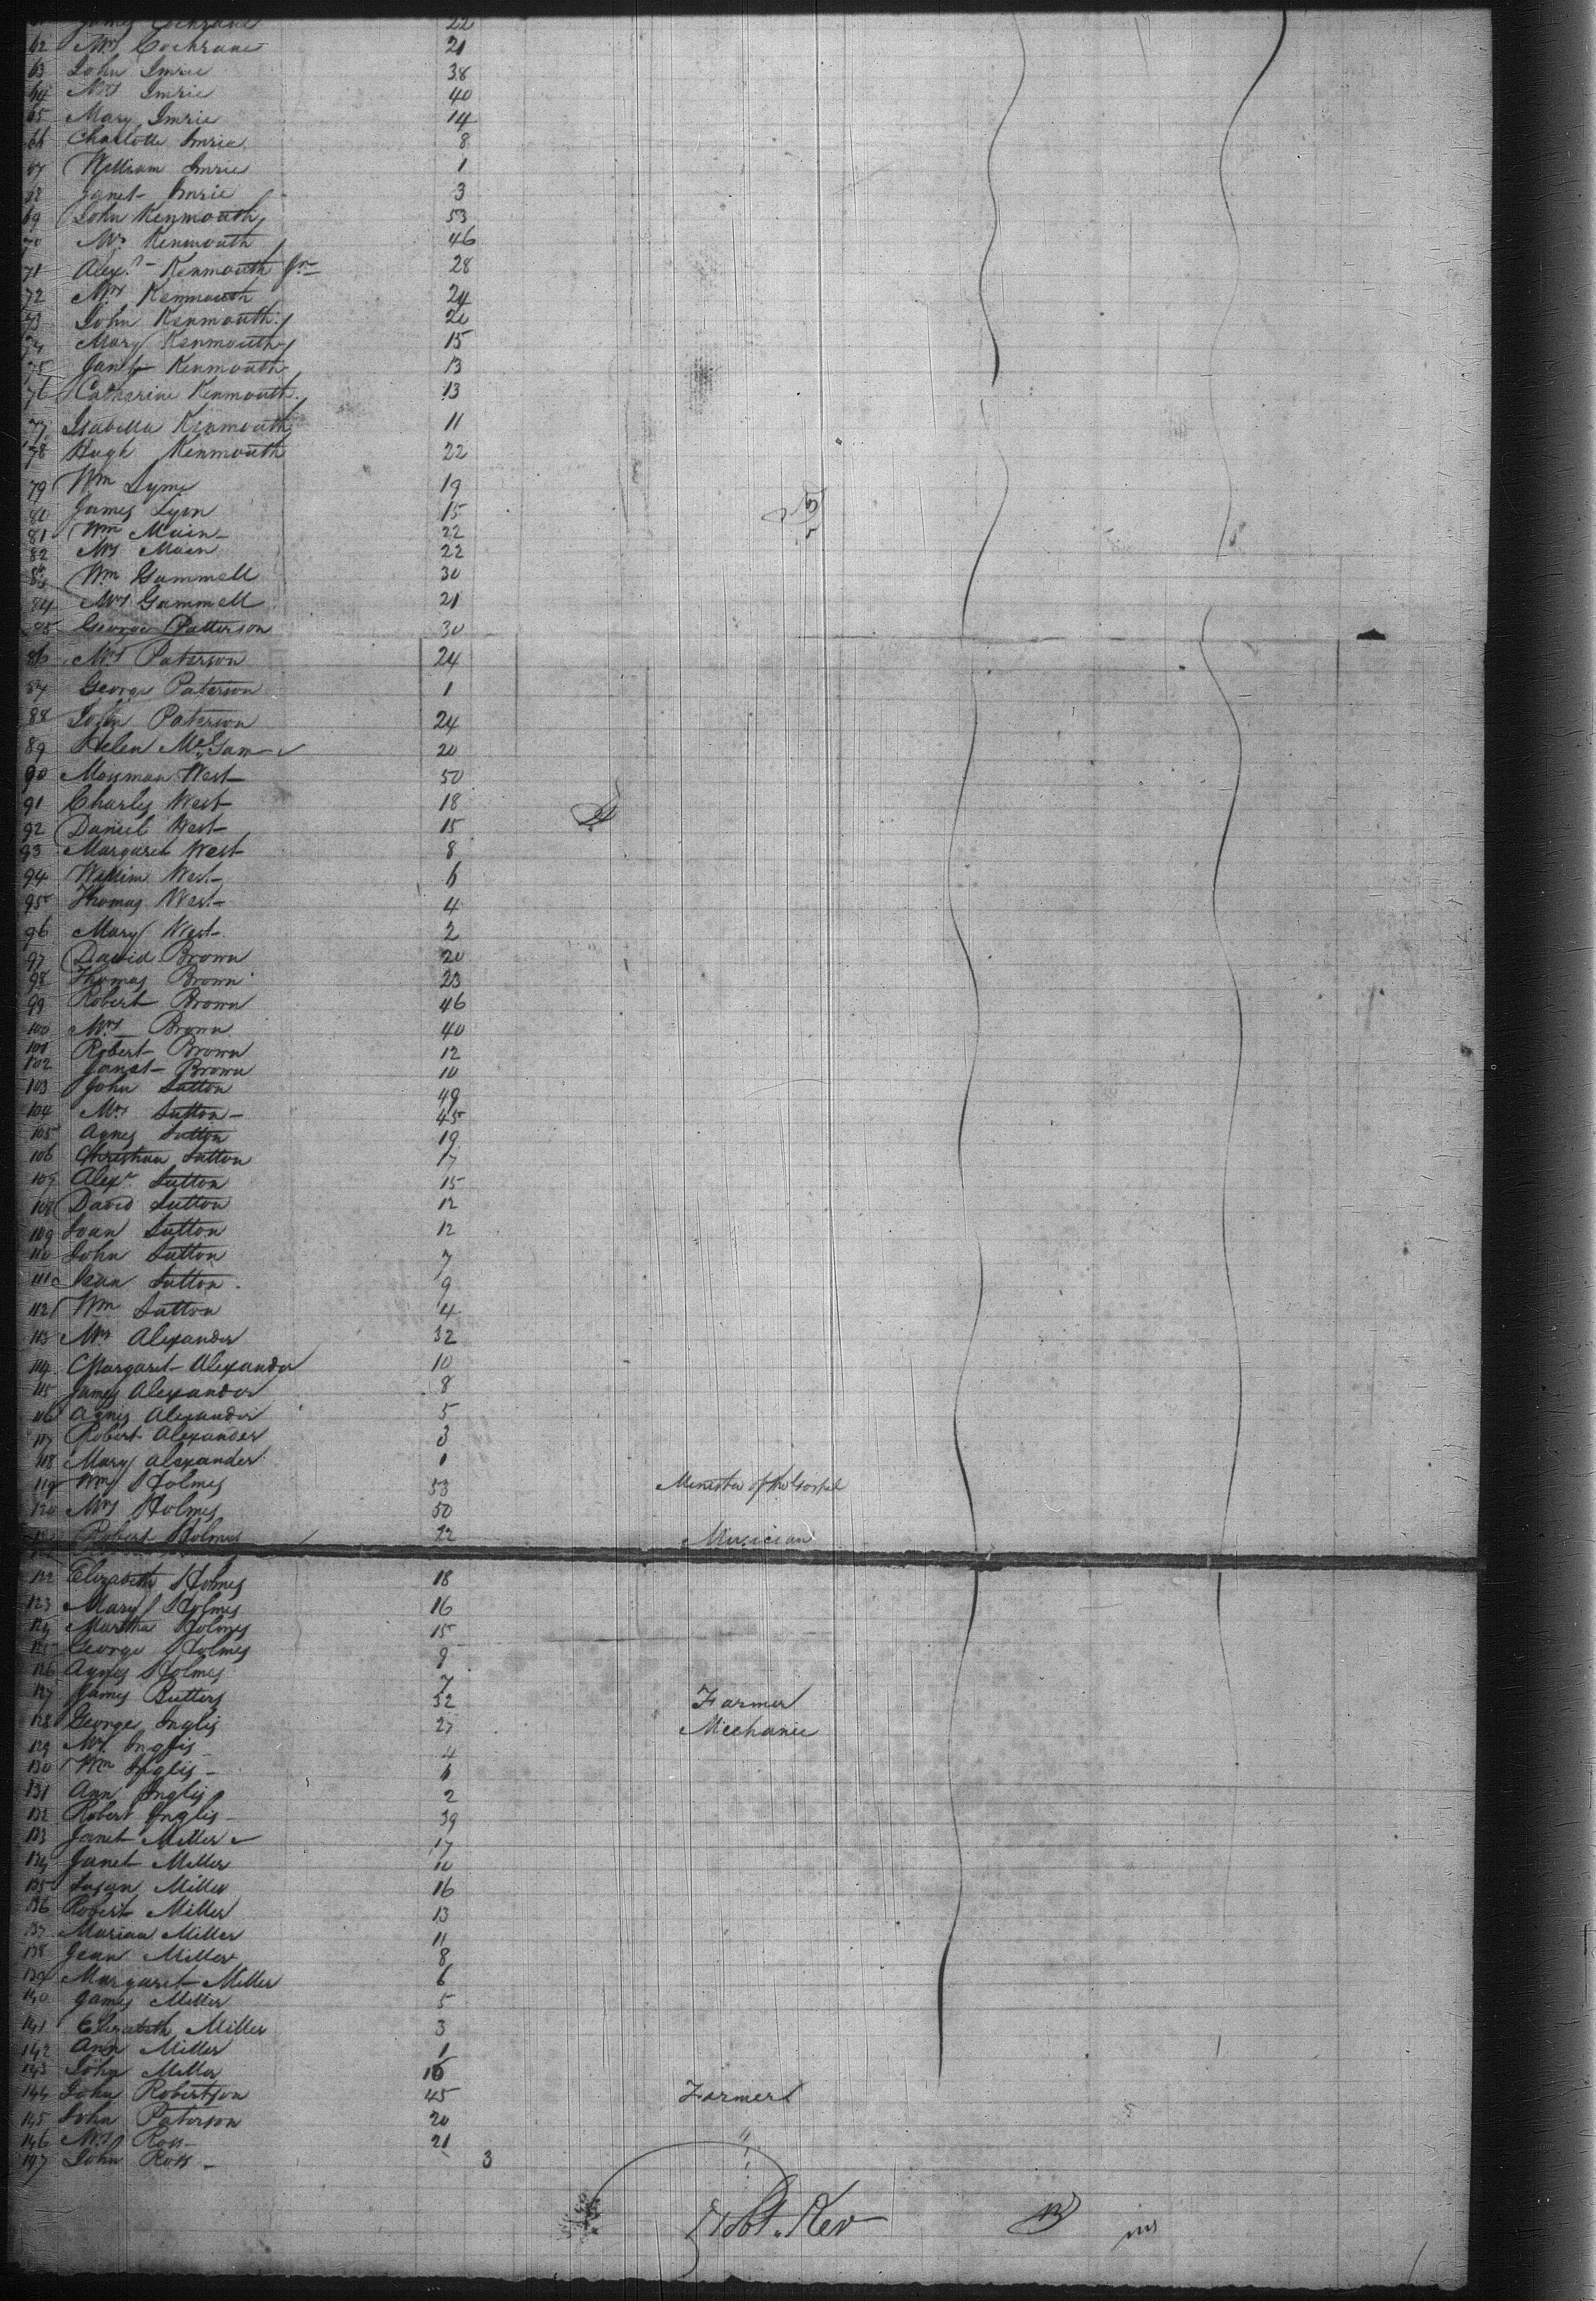 James Cochrane 22
62 Mrs Cochrane 21
63 John Imrie 38
64 Mrs Imrie 40
65 Mary Imrie 14
66 Charlotte Imrie 8
67 William Imrie 1
68 Janet Imrie 3
69 John Kenmouth 53
70 Mrs Kenmouth 46
71 Alexr Kenmouth Jr 28
72 Mrs Kenmouth 24
73 John Kenmouth 20
74 Mary Kenmouth 15
75 Janet Kenmouth 13
76 Catharine Kenmouth 13
77 Isabella Kenmouth 11
78 Hugh Kenmouth 22
79 Wm Syme 19
80 James Lyon 15
81 Wm Main 22
82 Mrs Main 22
83 Wm Gammell 30
84 Mrs Gammell 21
85 George Patterson 30
86 Mrs Paterson 24
87 George Paterson 1
88 John Paterson 24
89 Helen 20
90 West 50
91 Charles West 18
92 Daniel West 15
93 Margaret West 8
94 West 6
95 Thomas West 4
96 Mary West 2
97 David Brown 20
98 Thomas Brown 23
99 Robert Brown 46
100 Mrs Brown 40
101 Robert Brown 12
102 Janet Brown 10
103 John Sutton 49
104 Mrs Sutton 45
105 Agnes Sutton 19
106 Christian Sutton 17
107 Alexr Sutton 15
108 David Sutton 12
109 Joan Sutton 12
110 John Sutton 7
111 Jean Sutton 9
112 Wm Sutton 4
113 Mrs Alexander 32
114 Margaret Alexander 10
115 James Alexander 8
116 Agnes Alexander 5
117 Robert Alexander 3
118 Mary Alexander 1
119 Wm Holmes 53 Minister of the Gospel
120 Mrs Holmes 50
Robert Holmes 22 Musician
122 Elizabeth Holmes 18
123 Mary Holmes 16
124 Martha Holmes 15
125 George Holmes 9
126 Agnes Holmes 7
127 James Butters 32 Farmer
128 George Inglis 27 Mechanic
129 Mrs Inglis
130 Wm Inglis 4
131 Ann Inglis 6
132 Robert Inglis 2
133 Janet Miller 39
134 Janet Miller 17
135 Susan Miller 16
136 Robert Miller 13
137 Marian Miller 11
138 Jean Miller 8
139 Margaret Miller 6
140 James Miller 5
141 Elizabeth Miller 3
142 Ann Miller 1
143 John Miller 16
144 John Robertson 45 Farmer
145 John Paterson 20
146 Mrs Ross 21
147 John Ross 3